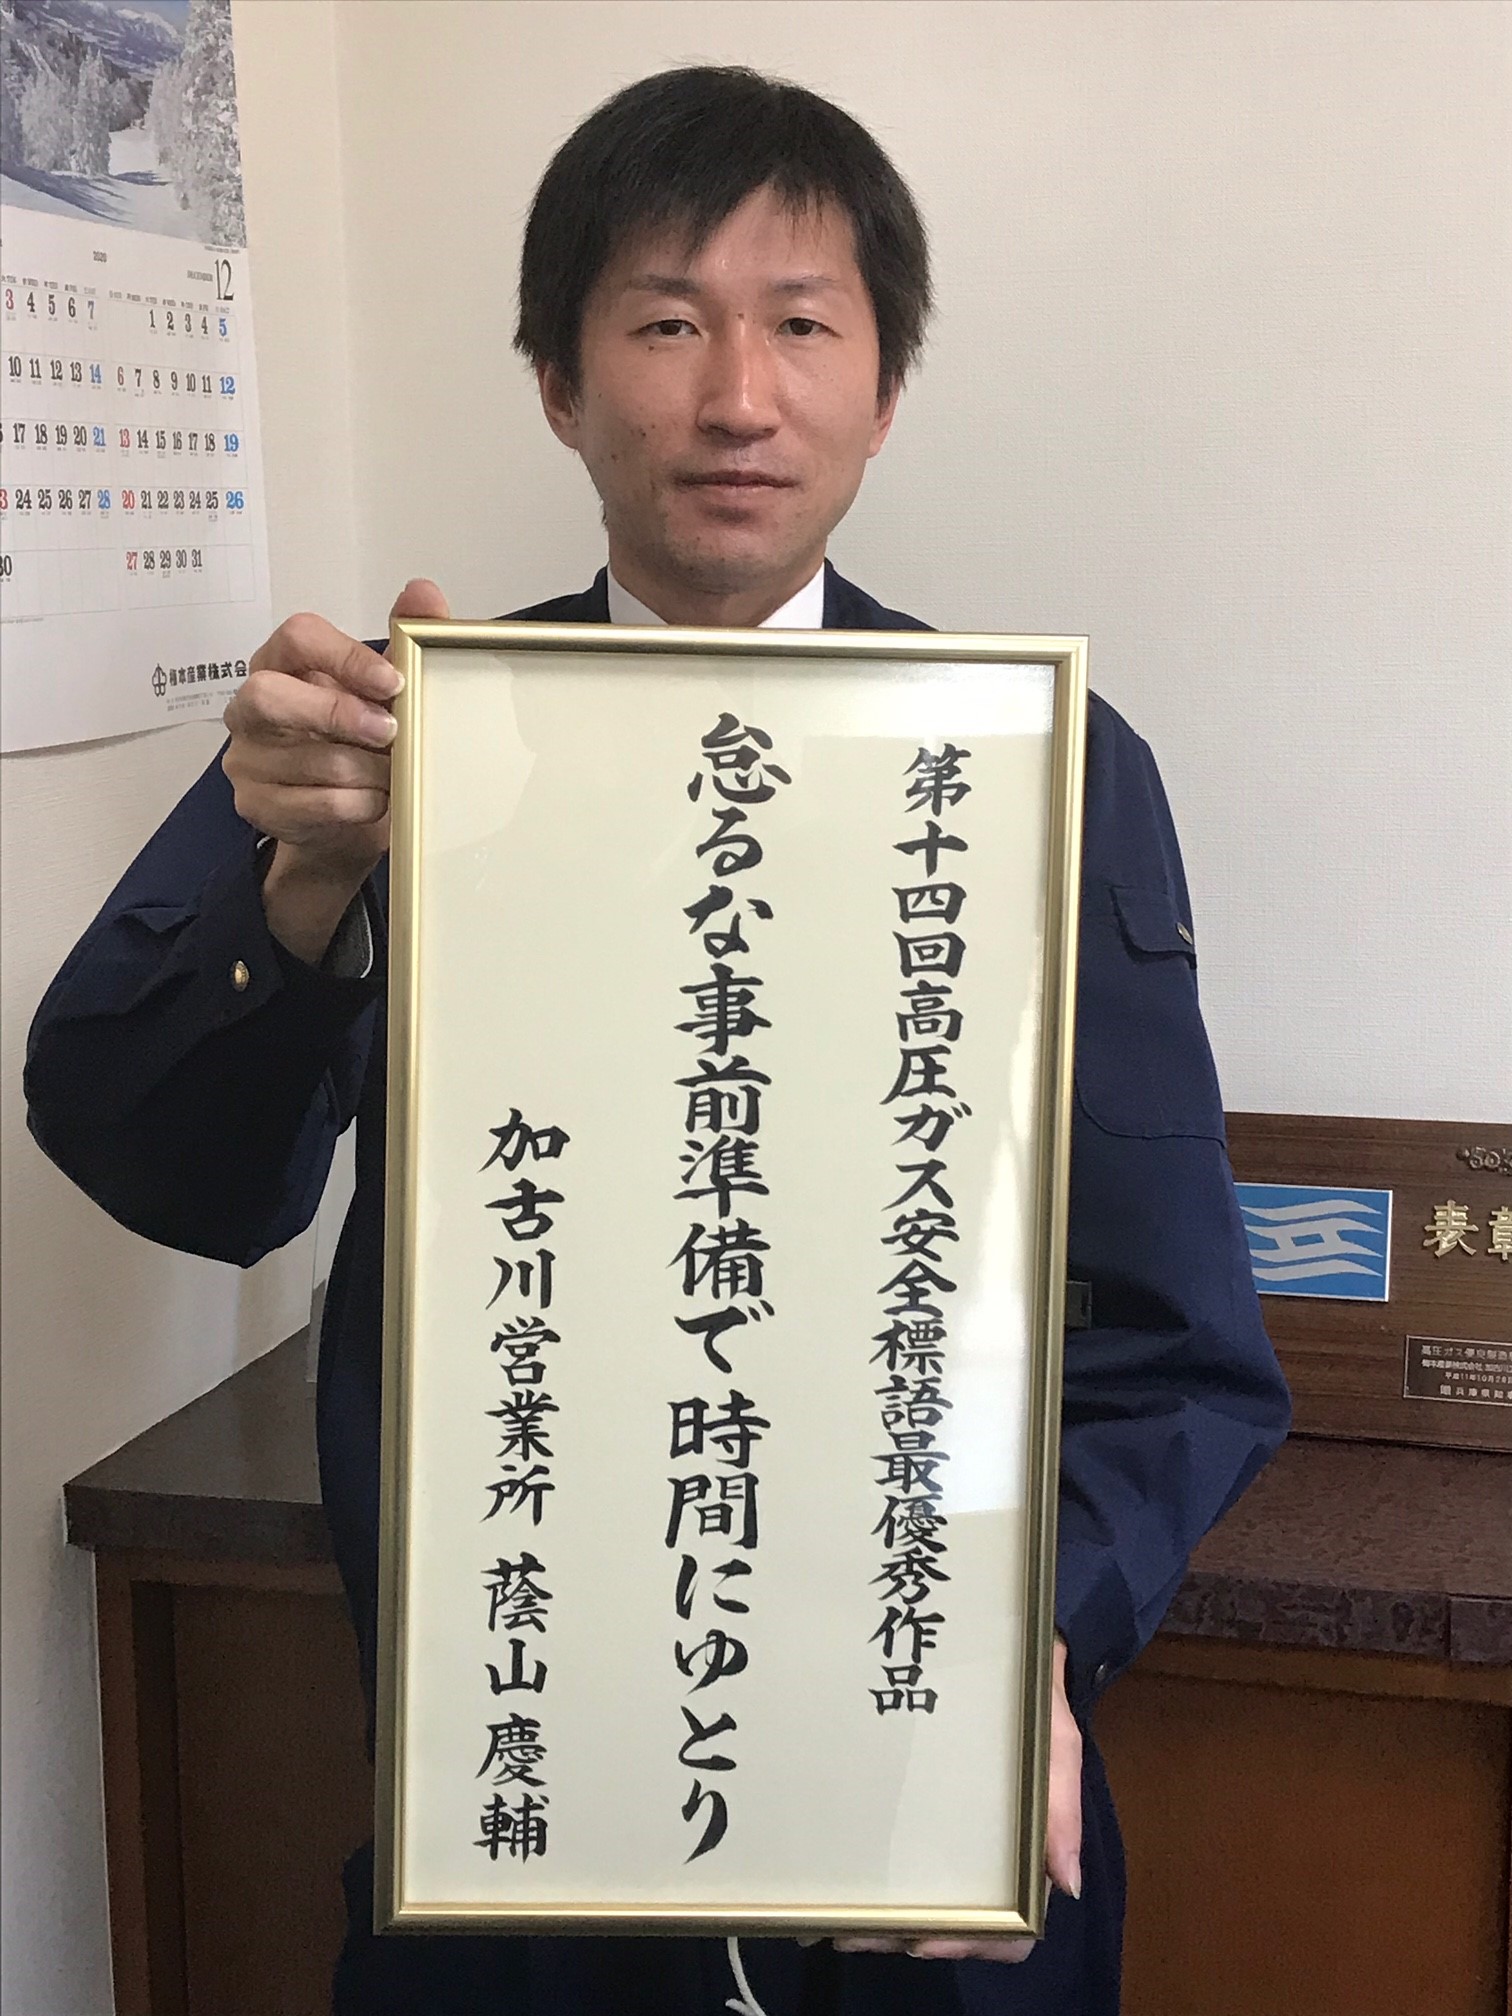 第十四回高圧ガス安全標語最優秀作品
怠るな事前準備で時間にゆとり
加古川営業所 蔭山 慶輔
2020
DECEMBER 12
3 4 5 6 7
10 11 12 13 14
17 18 19 20 21
23 24 25 26 27 28
30
1 2 3 4 5
6 7 8 9 10 11 12
13 14 15 16 17 18 19
20 21 22 23 24 25 26
27 28 29 30 31
本産業株式会
表彰
高圧ガス優良製造
本産業株式会社
平成11年10月28日
兵庫県知事